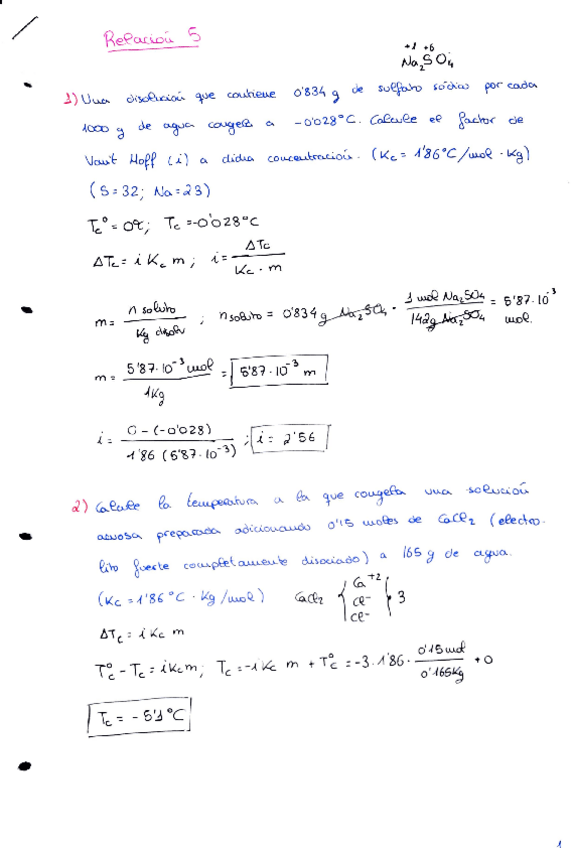 Relación 5
+1 +6
Na2SO4
1) Una disolución que contiene 0'834 g de sulfato sódico por cada
1000 g de agua congela a -0'028°C. Calcule el factor de
Vant Hoff (i) a dicha concentración. (Kc = 1'86°C/mol · Kg)
(S=32; Na=23)
Tc° = 0°C; Tc = -0'028°C
ΔTc = i Kc m ; i = ΔTc / Kc · m
m = n soluto / Kg disolv ; n soluto = 0'834 g Na2SO4 · 1 mol Na2SO4 / 142g Na2SO4 = 5'87·10^-3 mol.
m = 5'87·10^-3 mol / 1Kg = 5'87·10^-3 m
i = 0-(-0'028) / 1'86 (5'87·10^-3) ; i = 2'56
2) Calcule la temperatura a la que congela una solución
acuosa preparada adicionando 0'15 moles de CaCl2 (electro-
lito fuerte completamente disociado) a 165 g de agua.
(Kc = 1'86°C · Kg/mol) CaCl2 { Ca+2 Cl- Cl- } 3
ΔTc = i Kc m
Tc° - Tc = i Kc m; Tc = -i Kc m + Tc° = -3 · 1'86 · 0'15 mol / 0'165Kg + 0
Tc = -5'1°C
1